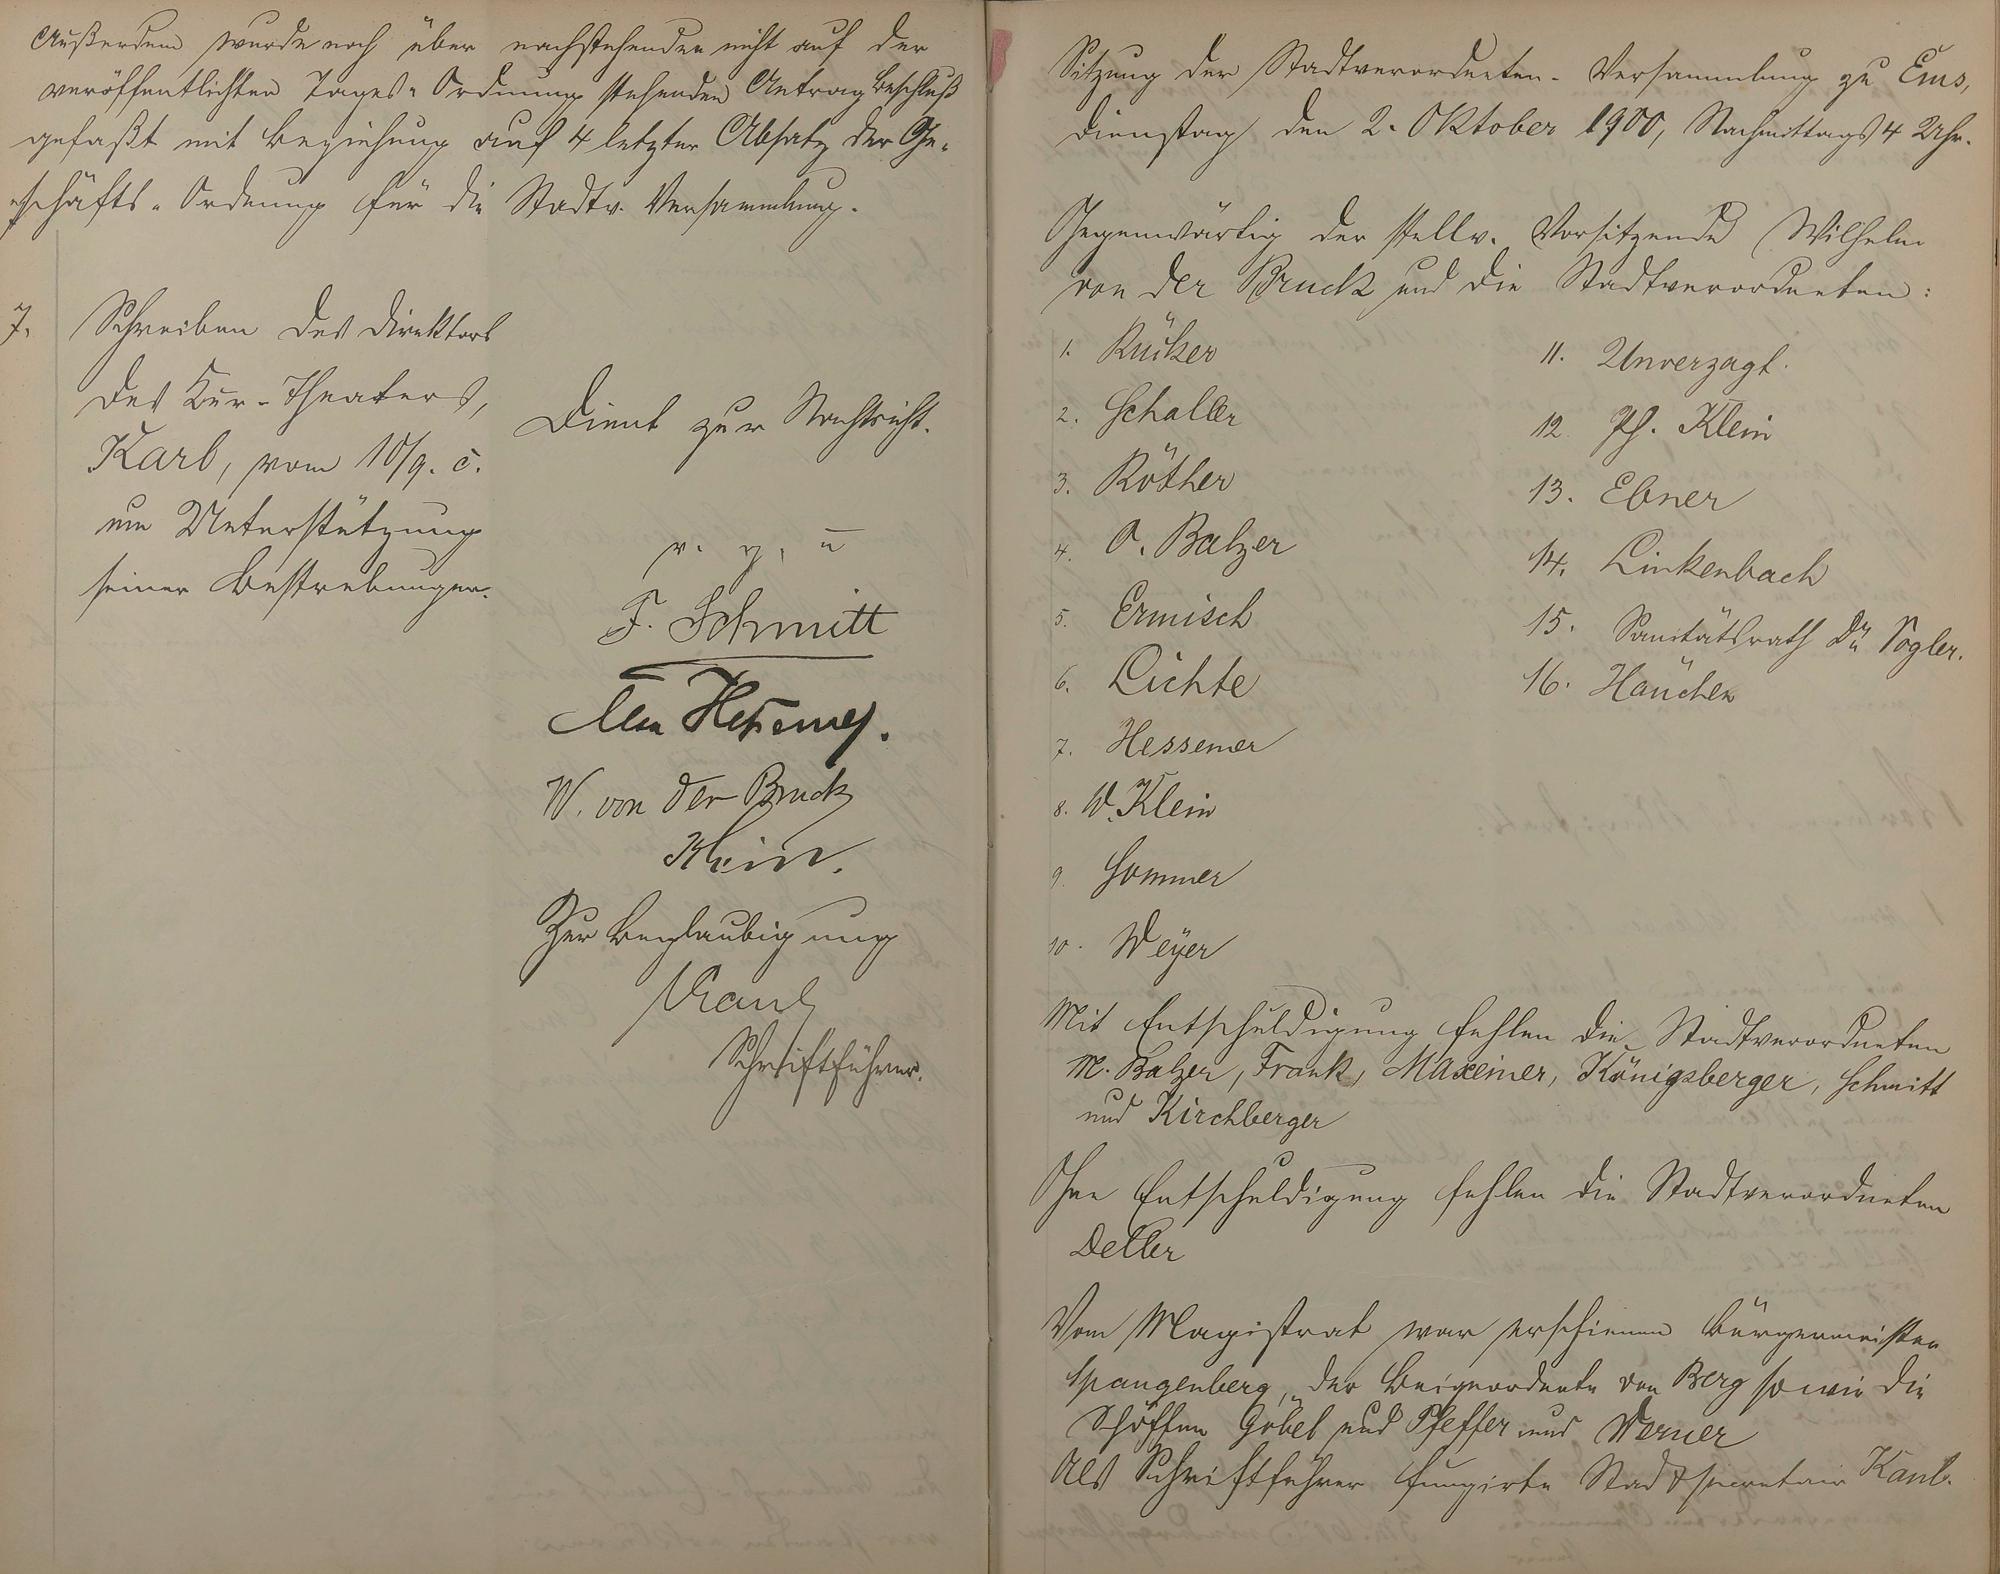 Außerdem wurde noch über nachstehenden nicht auf der
veröffentlichten Tages-Ordnung stehenden Antrag Beschluß
gefaßt mit Beziehung auf 4 letzter Absatz der Ge-
schäfts-Ordnung für die Stadtv. Versammlung.
7. Schreiben des Direktors
des Kur-Theaters,
Karl, vom 10/9. c.
um Unterstützung
seiner Bestrebungen.
Dient zur Nachricht.
v. g. u
F. Schmitt
W. von der Bruck
Klein.
Zur Beglaubigung
Kaul
Schriftführer.
Sitzung der Stadtverordneten-Versammlung zu Ems,
Dienstag den 2. Oktober 1900, Nachmittags 4 Uhr.
Gegenwärtig der stellv. Vorsitzende Wilhelm
von der Bruck und die Stadtverordneten:
1. Rücker
2. Schaller
3. Röther
4. O. Balzer
5. Ermisch
6. Lichte
7. Hessemer
8. W. Klein
9. Sommer
10. Weyer
11. Unverzagt.
12. Ph. Klein
13. Ebner
14. Linkenbach
15. Sanitätsrath Dr. Vogler.
16. Häuchen
Mit Entschuldigung fehlen die Stadtverordneten
M. Balzer, Frank, Maxeiner, Königsberger, Schmitt
und Kirchberger
Ohne Entschuldigung fehlen die Stadtverordneten
Deller
Vom Magistrat war erschienen Bürgermeister
Spangenberg, der Beigeordnete von Berg sowie die
Schöffen Göbel und Pfeffer und Werner
Als Schriftführer fungirte Stadtsecretair Kaul.